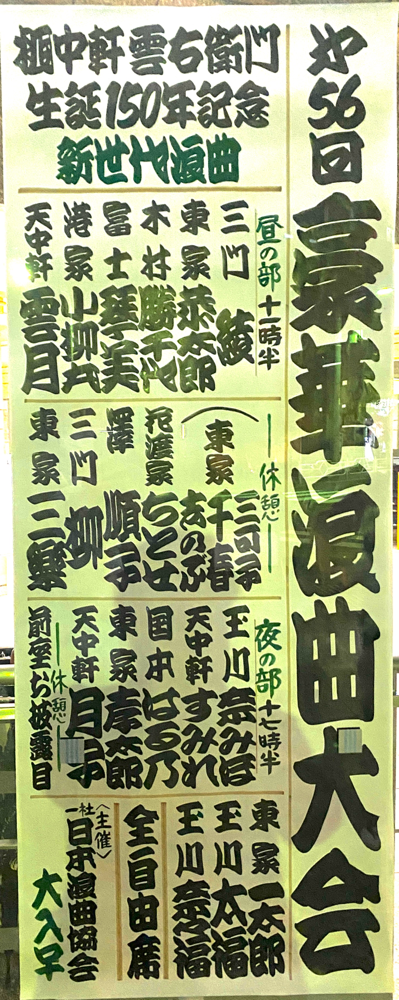 㐧56回
豪華浪曲大会
桃中軒雲右衛门
生誕150年記念
新世代浪曲
昼の部 十一時半
三门 綾
東家 恭太郎
木村 勝千代
富士 琴美
港家 小柳丸
天中軒 雲月
休憩
東家
三可子
千春
志のぶ
花渡家 ちとせ
澤 順子
三门 柳
東家 三樂
夜の部 十七時半
玉川 奈みほ
天中軒 すみれ
国本 はる乃
東家 孝太郎
天中軒 月子
休憩
前座お披露目
東家 一太郎
玉川 太福
玉川 奈々福
全自由席
〈主催〉
一社 日本浪曲協会
大入